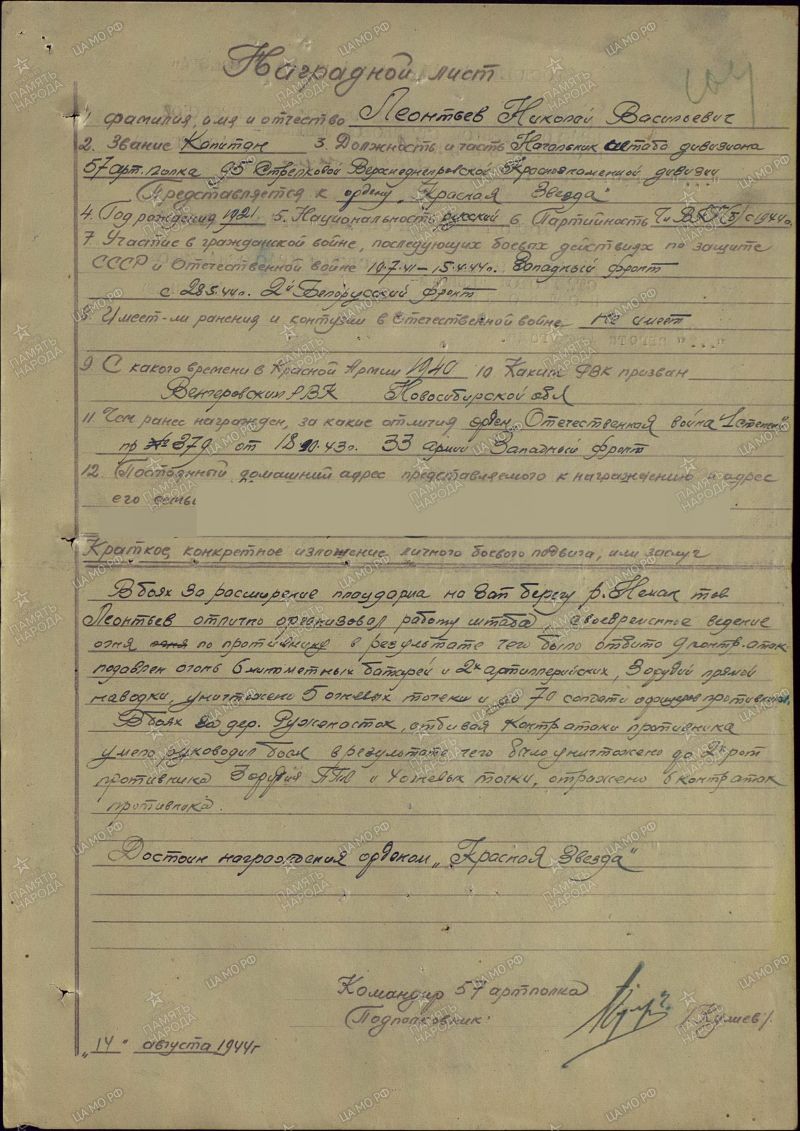 Наградной лист
1. фамилия, имя и отчество Леонтьев Николай Васильевич
2. Звание Капитан 3. Должность и часть Начальник штаба дивизиона
57 арт. полка 95 Стрелковой Верхнеднепровской Краснознаменной дивизии
Представляется к ордену „Красная Звезда"
4. Год рождения 1921 5. Национальность русский 6. Партийность ВКП(б) с 1944г.
7. Участие в гражданской войне, последующих боевых действиях по защите
СССР и Отечественной войне 10.7.41 – 15.4.44г. Западный фронт
с 28.5.44г. 2й Белорусский фронт
8. Имеет-ли ранения и контузии в Отечественной войне не имеет
9 С какого времени в Красной Армии 1940 10 Каким РВК призван
Венгеровским РВК Новосибирской обл
11 Чем ранее награжден, за какие отличия орден „Отечественная война" 1 степени
пр № 87д от 18.10.43г. 33 армии Западный фронт
12. Постоянный домашний адрес представляемого к награждению и адрес
его семьи
Краткое, конкретное изложение личного боевого подвига, или заслуг
В боях за расширение плацдарма на зап берегу р. Неман тов
Леонтьев отлично организовал работу штаба, своевременное ведение
огня по противнику в результате чего было отбито 9 контратак
подавлен огонь 6 минометных батарей и 2х артиллерийских, 3 орудий прямой
наводки, уничтожено 5 огневых точек и до 70 солдат и офицеров противника.
В боях за дер. Ружаносток, отбивая контратаки противника
умело руководил боем в результате чего было уничтожено до 2х рот
противника 3 орудия ПТО и 4 огневых точки, отражено 6 контратак
противника.
Достоин награждения орденом „Красная Звезда"
Командир 57 артполка
Подполковник: /Кулиев/
„14" августа 1944г